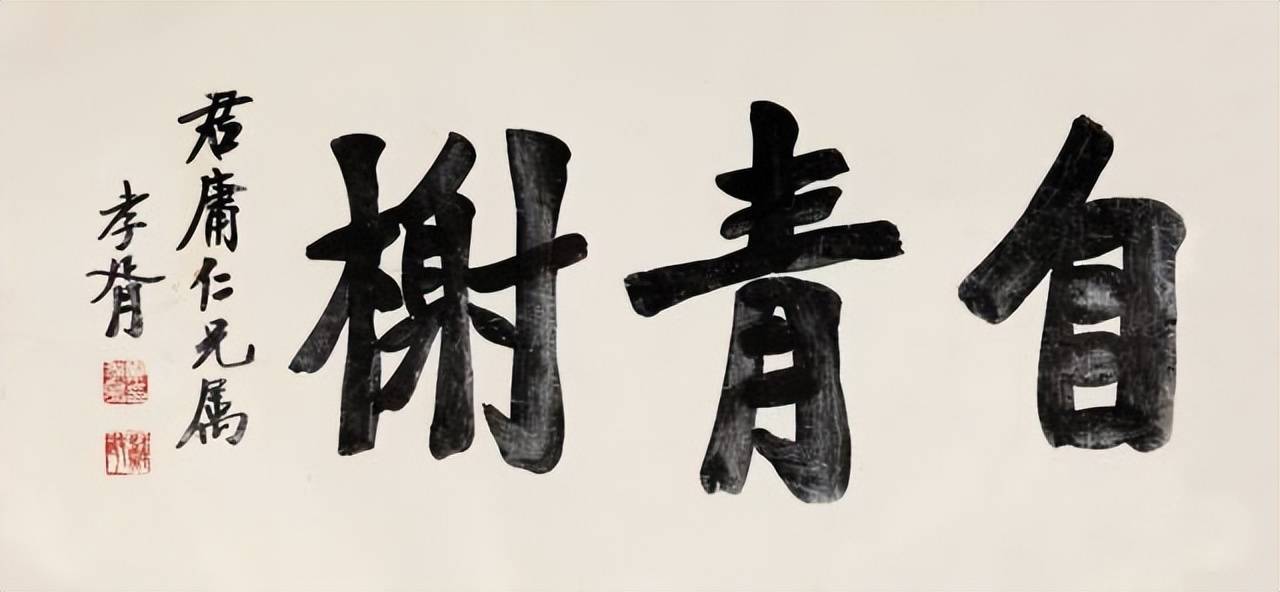 自青榭
君庸仁兄属
孝胥